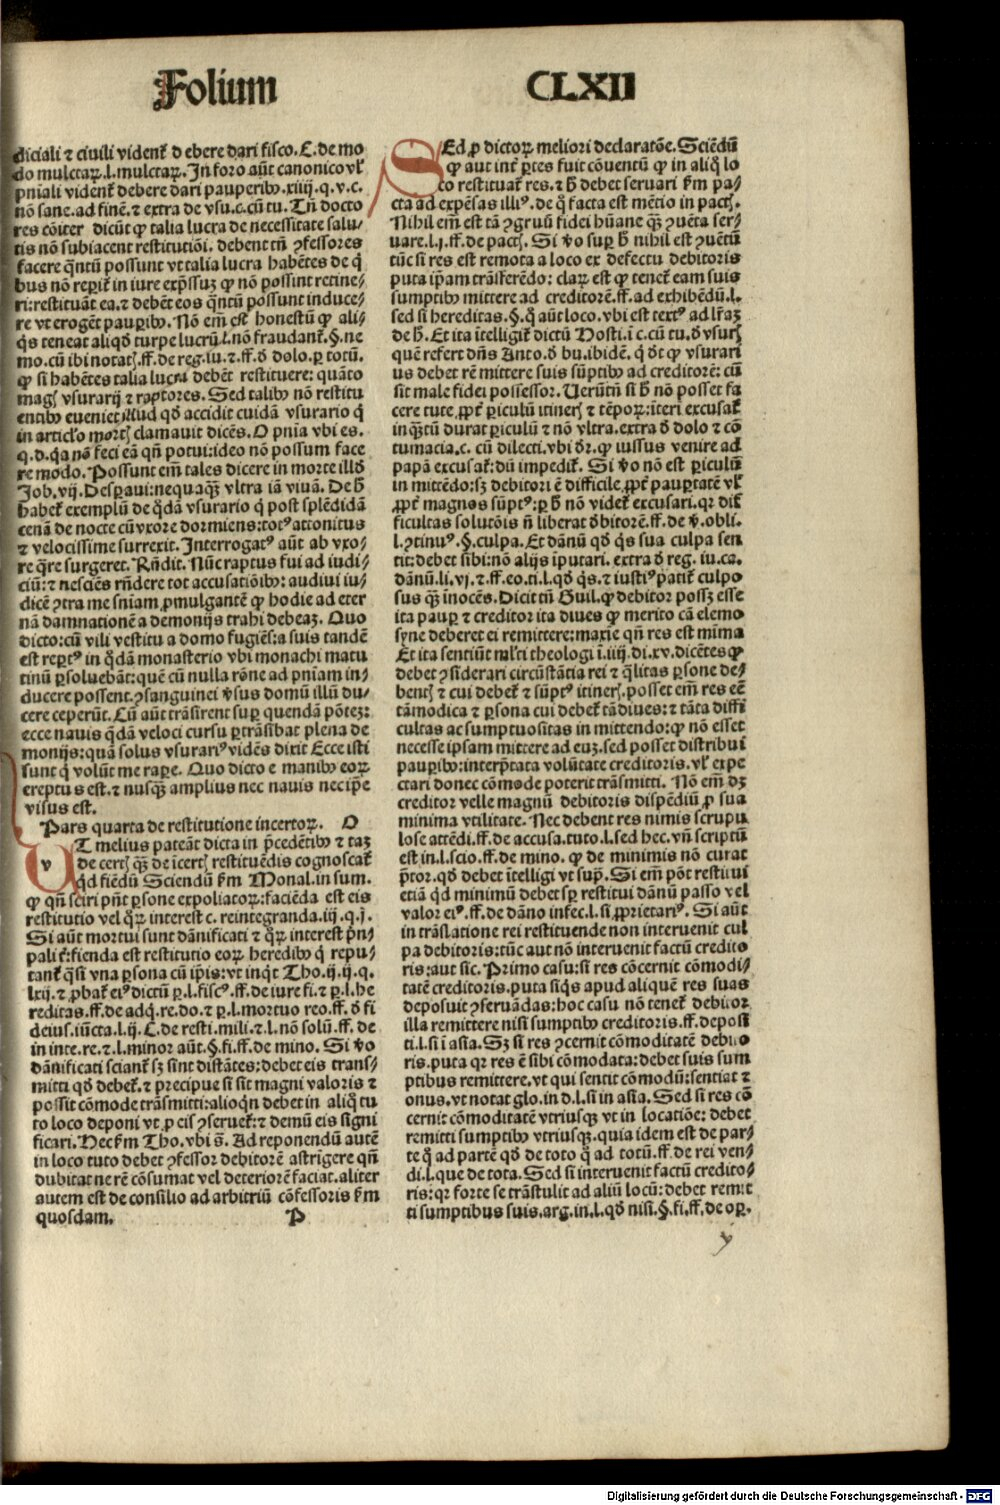 Folium CLXII
diciali ⁊ ciuili vident᷑ d ebere dari fisco. C. de mo
do mulctaꝝ. l. mulctaꝝ. In foro aūt canonico vl̓
pn̄iali vident᷑ debere dari pauperibꝰ. xiiij. q. v. c.
nō sane. ad finē. ⁊ extra de vsu. c. cū tu. Tn̄ docto
res cōiter dicūt ꝙ talia lucra de necessitate salu⸗
tis nō subiacent restitutiōi. debent tn̄ ꝯfessores
facere q̄ntū possunt vt talia lucra habētes de q̇
bus nō reperit᷑ in iure exp̄ssuꝫ ꝙ nō possint retine⸗
ri: restituāt ea. ⁊ debēt eos q̄ntū possunt induce⸗
re vt erogēt pauꝑibꝰ. Nō em̄ est honestū ꝙ ali⸗
q̇s teneat aliqd̓ turpe lucrū. l. nō fraudant᷑. §. ne
mo. cū ibi notatꝭ. ff. de reg. iu. ⁊ ff. d̓ dolo. ꝑ totū.
ꝙ si habētes talia lucra debēt restituere: quāto
magꝭ vsurarij ⁊ raptores. Sed talibꝰ nō restitu
entibꝰ eueniet illud qd̓ accidit cuidā vsurario q̇
in articl̓o mortꝭ clamauit dicēs. O pn̄ia vbi es.
q. d. q̇a nō feci eā qn̄ potui: ideo nō possum face
re modo. Possunt em̄ tales dicere in morte illd̓
Job. vij. Desꝑaui: nequaqꝫ vltra iā viuā. De h̓
habet᷑ exemplū de q̇dā vsurario q̇ post splēdidā
cenā de nocte cū vxore dormiens: totꝰ attonitus
⁊ velocissime surrexit. Interrogatꝰ aūt ab vxo⸗
re q̄re surgeret. Rn̄dit. Nūc raptus fui ad iudi⸗
ciū: ⁊ nesciēs rn̄dere tot accusatiōibꝰ: audiui iu⸗
dicē ꝯtra me sn̄iam ꝓmulgantē ꝙ hodie ad eter
nā damnationē a demonijs trahi debeaꝫ. Quo
dicto: cū vili vestitu a domo fugiēs: a suis tandē
est reꝑtꝰ in q̇dā monasterio vbi monachi matu
tinū ꝑsoluebāt: quē cū nulla rōne ad pn̄iam in⸗
ducere possent. ꝯsanguinei v̓sus domū illū du⸗
cere ceperūt. Cū aūt trāsirent suꝑ quendā pōteꝫ:
ecce nauis q̇dā veloci cursu ꝑtrāsibat plena de
monijs: quā solus vsurariꝰ vidēs dixit Ecce isti
sunt q̇ volūt me raꝑe. Quo dicto e manibꝰ eoꝝ
ereptus est. ⁊ nusqꝫ amplius nec nauis nec ip̄e
visus est.
Pars quarta de restitutione incertoꝝ. O
UT melius pateāt dicta in p̄cedētibꝰ ⁊ taꝫ
de certꝭ qꝫ de īcertꝭ restituēdis cognoscat᷑
qd̓ fiēdū Sciendū s̓m Monal. in sum.
ꝙ qn̄ sciri pn̄t ꝑsone expoliatoꝝ: faciēda est eis
restitutio vel qꝝ interest c. reintegranda. iij. q. j.
Si aūt mortui sunt dānificati ⁊ qꝝ interest p̄n⸗
pali᷑: fienda est restitutio eoꝝ heredibꝰ q̇ repu⸗
tant᷑ q̄si vna ꝑsona cū ip̄is: vt inq̇t Tho. ij. ij. q.
lxij. ⁊ ꝓbat᷑ eiꝰ dictū ꝑ. l. fiscꝰ. ff. de iure fi. ⁊ ꝑ. l. he
reditas. ff. de adq̇. re. do. ⁊ ꝑ. l. mortuo reo. ff. d̓ fi
deius. iūcta. l. ij. C. de resti. mili. ⁊ l. nō solū. ff. de
in inte. re. ⁊ l. minor aūt. §. fi. ff. de mino. Si v̓o
dānificati sciant᷑ sꝫ sint distātes: debet eis trans⸗
mitti qd̓ debet᷑. ⁊ precipue si sit magni valoris ⁊
possit cōmode trāsmitti: alioqn̄ debet in aliq̇ tu
to loco deponi vt ꝓ eis ꝯseruet᷑: ⁊ demū eis signi
ficari. Nec s̓m Tho. vbi s̄. Ad reponendū autē
in loco tuto debet ꝯfessor debitorē astrīgere qn̄
dubitat ne rē cōsumat vel deteriorē faciat. aliter
autem est de consilio ad arbitriū cōfessoris s̓m
quosdam. P
SEd ꝓ dictoꝝ meliori declaratōe. Sciēdū
ꝙ aut int̓ ꝑtes fuit cōuentū ꝙ in aliq̇ lo
co restituat᷑ res. ⁊ h̓ debet seruari s̓m pa⸗
cta ad expēsas illiꝰ. de q̇ facta est mētio in pactꝭ.
Nihil em̄ est tā ꝯgruū fidei hūane qꝫ ꝯuēta ser⸗
uare. l. j. ff. de pactꝭ. Si v̓o suꝑ h̓ nihil est ꝯuētū
tūc si res est remota a loco ex defectu debitoris
puta ip̄am trāsferēdo: claꝝ est ꝙ tenet᷑ eam suis
sumptibꝰ mittere ad creditorē. ff. ad exhibēdū. l.
sed si hereditas. §. q̇ aūt loco. vbi est textꝰ ad l̓raꝫ
de h̓. Et ita ītelligit᷑ dictū Hosti. ī c. cū tu. d̓ vsurꝭ
quē refert dn̄s Anto. d̓ bu. ibidē. q̇ d̓t ꝙ vsurari
us debet rē mittere suis sūptibꝰ ad creditorē: cū
sit male fidei possessor. Uerūtn̄ si h̓ nō posset fa
cere tute ꝓpt̓ ꝑiculū itinerꝭ ⁊ tēpoꝝ: īteri excusat᷑
inqꝫtū durat ꝑiculū ⁊ nō vltra. extra d̓ dolo ⁊ cō
tumacia. c. cū dilecti. vbi d̓r. ꝙ iussus venire ad
papā excusat᷑: dū impedit᷑. Si v̓o nō est ꝑiculūm
in mittēdo: sꝫ debitori ē difficile ꝓpt̓ pauꝑtatē vl̓
ꝓpt̓ magnos sūptꝰ: ꝑ h̓ nō videt᷑ excusari. qꝛ dif
ficultas solutōis n̄ liberat d̓bitorē. ff. de v̓. obli.
l. ꝯtinuꝰ. §. culpa. Et dānū qd̓ q̇s sua culpa sen
tit: debet sibi: nō alijs īputari. extra d̓ reg. iu. ca.
dānū. li. vj. ⁊ ff. eo. ti. l. qd̓ q̇s. ⁊ iustiꝰ patit᷑ culpo
sus qꝫ īnocēs. Dicit tn̄ Guil. ꝙ debitor possꝫ esse
ita pauꝑ ⁊ creditor ita diues ꝙ merito cā elemo
syne deberet ei remittere: maxie qn̄ res est mīma
Et ita sentiūt ml̓ti theologi ī. iiij. di. xv. dicētes ꝙ
debet ꝯsiderari circūstātia rei ⁊ q̇litas ꝑsone de⸗
bentꝭ ⁊ cui debet᷑ ⁊ sūptꝰ itinerꝭ. posset em̄ res eē
tā modica ⁊ ꝑsona cui debet᷑ tā diues: ⁊ tāta diffi
cultas ac sumptuositas in mittendo: ꝙ nō esset
necesse ipsam mittere ad euꝫ. sed posset distribui
pauꝑibꝰ: interp̄tata volūtate creditoris. vl̓ expe
ctari donec cōmode poterit trāsmitti. Nō em̄ dꝫ
creditor velle magnū debitoris dispēdiū ꝓ sua
minima vtilitate. Nec debent res nimis scrupu
lose attēdi. ff. de accusa. tuto. l. sed hec. vn̄ scriptū
est in. l. scio. ff. de mino. ꝙ de minimis nō curat
p̄tor. qd̓ debet ītelligi vt supᷓ. Si em̄ pōt restitui
etiā qd̓ minimū debet sꝑ restitui dānū passo vel
valor eiꝰ. ff. de dāno infec. l. si ꝓprietariꝰ. Si aūt
in trāslatione rei restituende non interuenit cul
pa debitoris: tūc aut nō interuenit factū credito
ris: aut sic. Primo casu: si res cōcernit cōmodi⸗
tatē creditoris. puta siq̇s apud aliquē res suas
deposuit ꝯseruādas: hoc casu nō tenet᷑ debitor
illa remittere nisi sumptibꝰ creditoris. ff. deposi
ti. l. si ī asia. Sꝫ si res ꝯcernit cōmoditatē debito
ris. puta qꝛ res ē sibi cōmodata: debet suis sum
ptibus remittere. vt qui sentit cōmodū: sentiat ⁊
onus. vt notat glo. in d. l. si in asia. Sed si res cō
cernit cōmoditatē vtriusqꝫ vt in locatiōe: debet
remitti sumptibꝰ vtriusqꝫ. quia idem est de par⸗
te q̇ ad partē qd̓ de toto q̇ ad totū. ff. de rei ven⸗
di. l. que de tota. Sed si interuenit factū credito⸗
ris: qꝛ forte se trāstulit ad aliū locū: debet remit
ti sumptibus suis. arg. in. l. qd̓ nisi. §. fi. ff. de oꝑ.
y
Digitalisierung gefördert durch die Deutsche Forschungsgemeinschaft - DFG